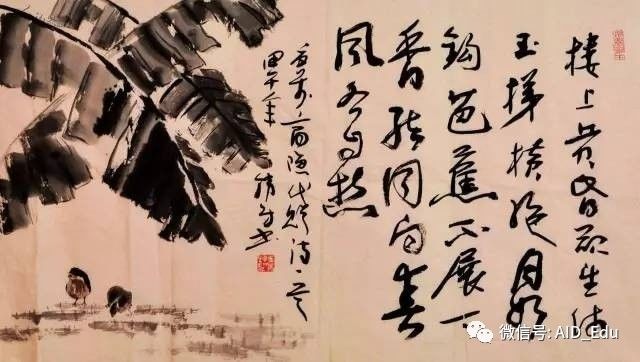 楼上黄昏欲望休
玉梯横绝月如
钩芭蕉不展丁
香结同向春
风各自愁
李商隐代赠诗一首
甲午年
书
微信号: AID_Edu